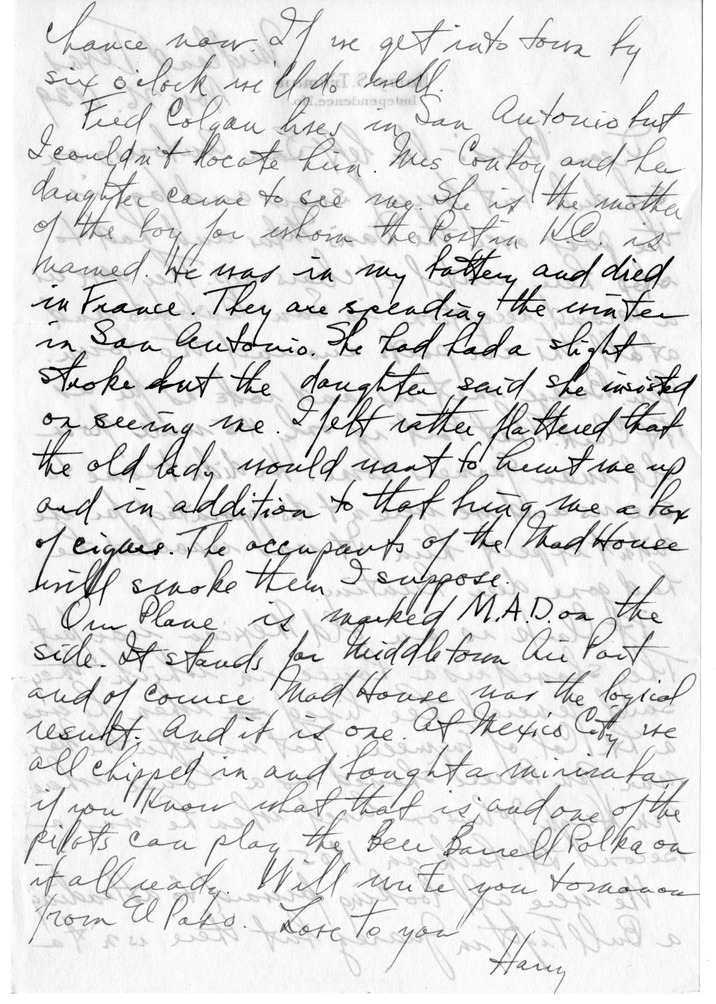 chance now. If we get into town by
six o'clock we'll do well.
Fred Colgan lives in San Antonio but
I couldn't locate him. Mrs Conboy and her
daughter came to see me. She is the mother
of the boy for whom the Post in K.C. is
named. He was in my battery and died
in France. They are spending the winter
in San Antonio. She had had a slight
stroke but the daughter said she insisted
on seeing me. I felt rather flattered that
the old lady would want to hunt me up
and in addition to that bring me a box
of cigars. The occupants of the Mad House
will smoke them I suppose.
Our Plane is marked M.A.D. on the
side. It stands for Middletown Air Port
and of course Mad House was the logical
result. And it is one. At Mexico City we
all chipped in and bought a
if you know what that is, and one of the
pilots can play the Beer Barrell Polka on
it all ready. Will write you tomorrow
from El Paso. Love to you
Harry